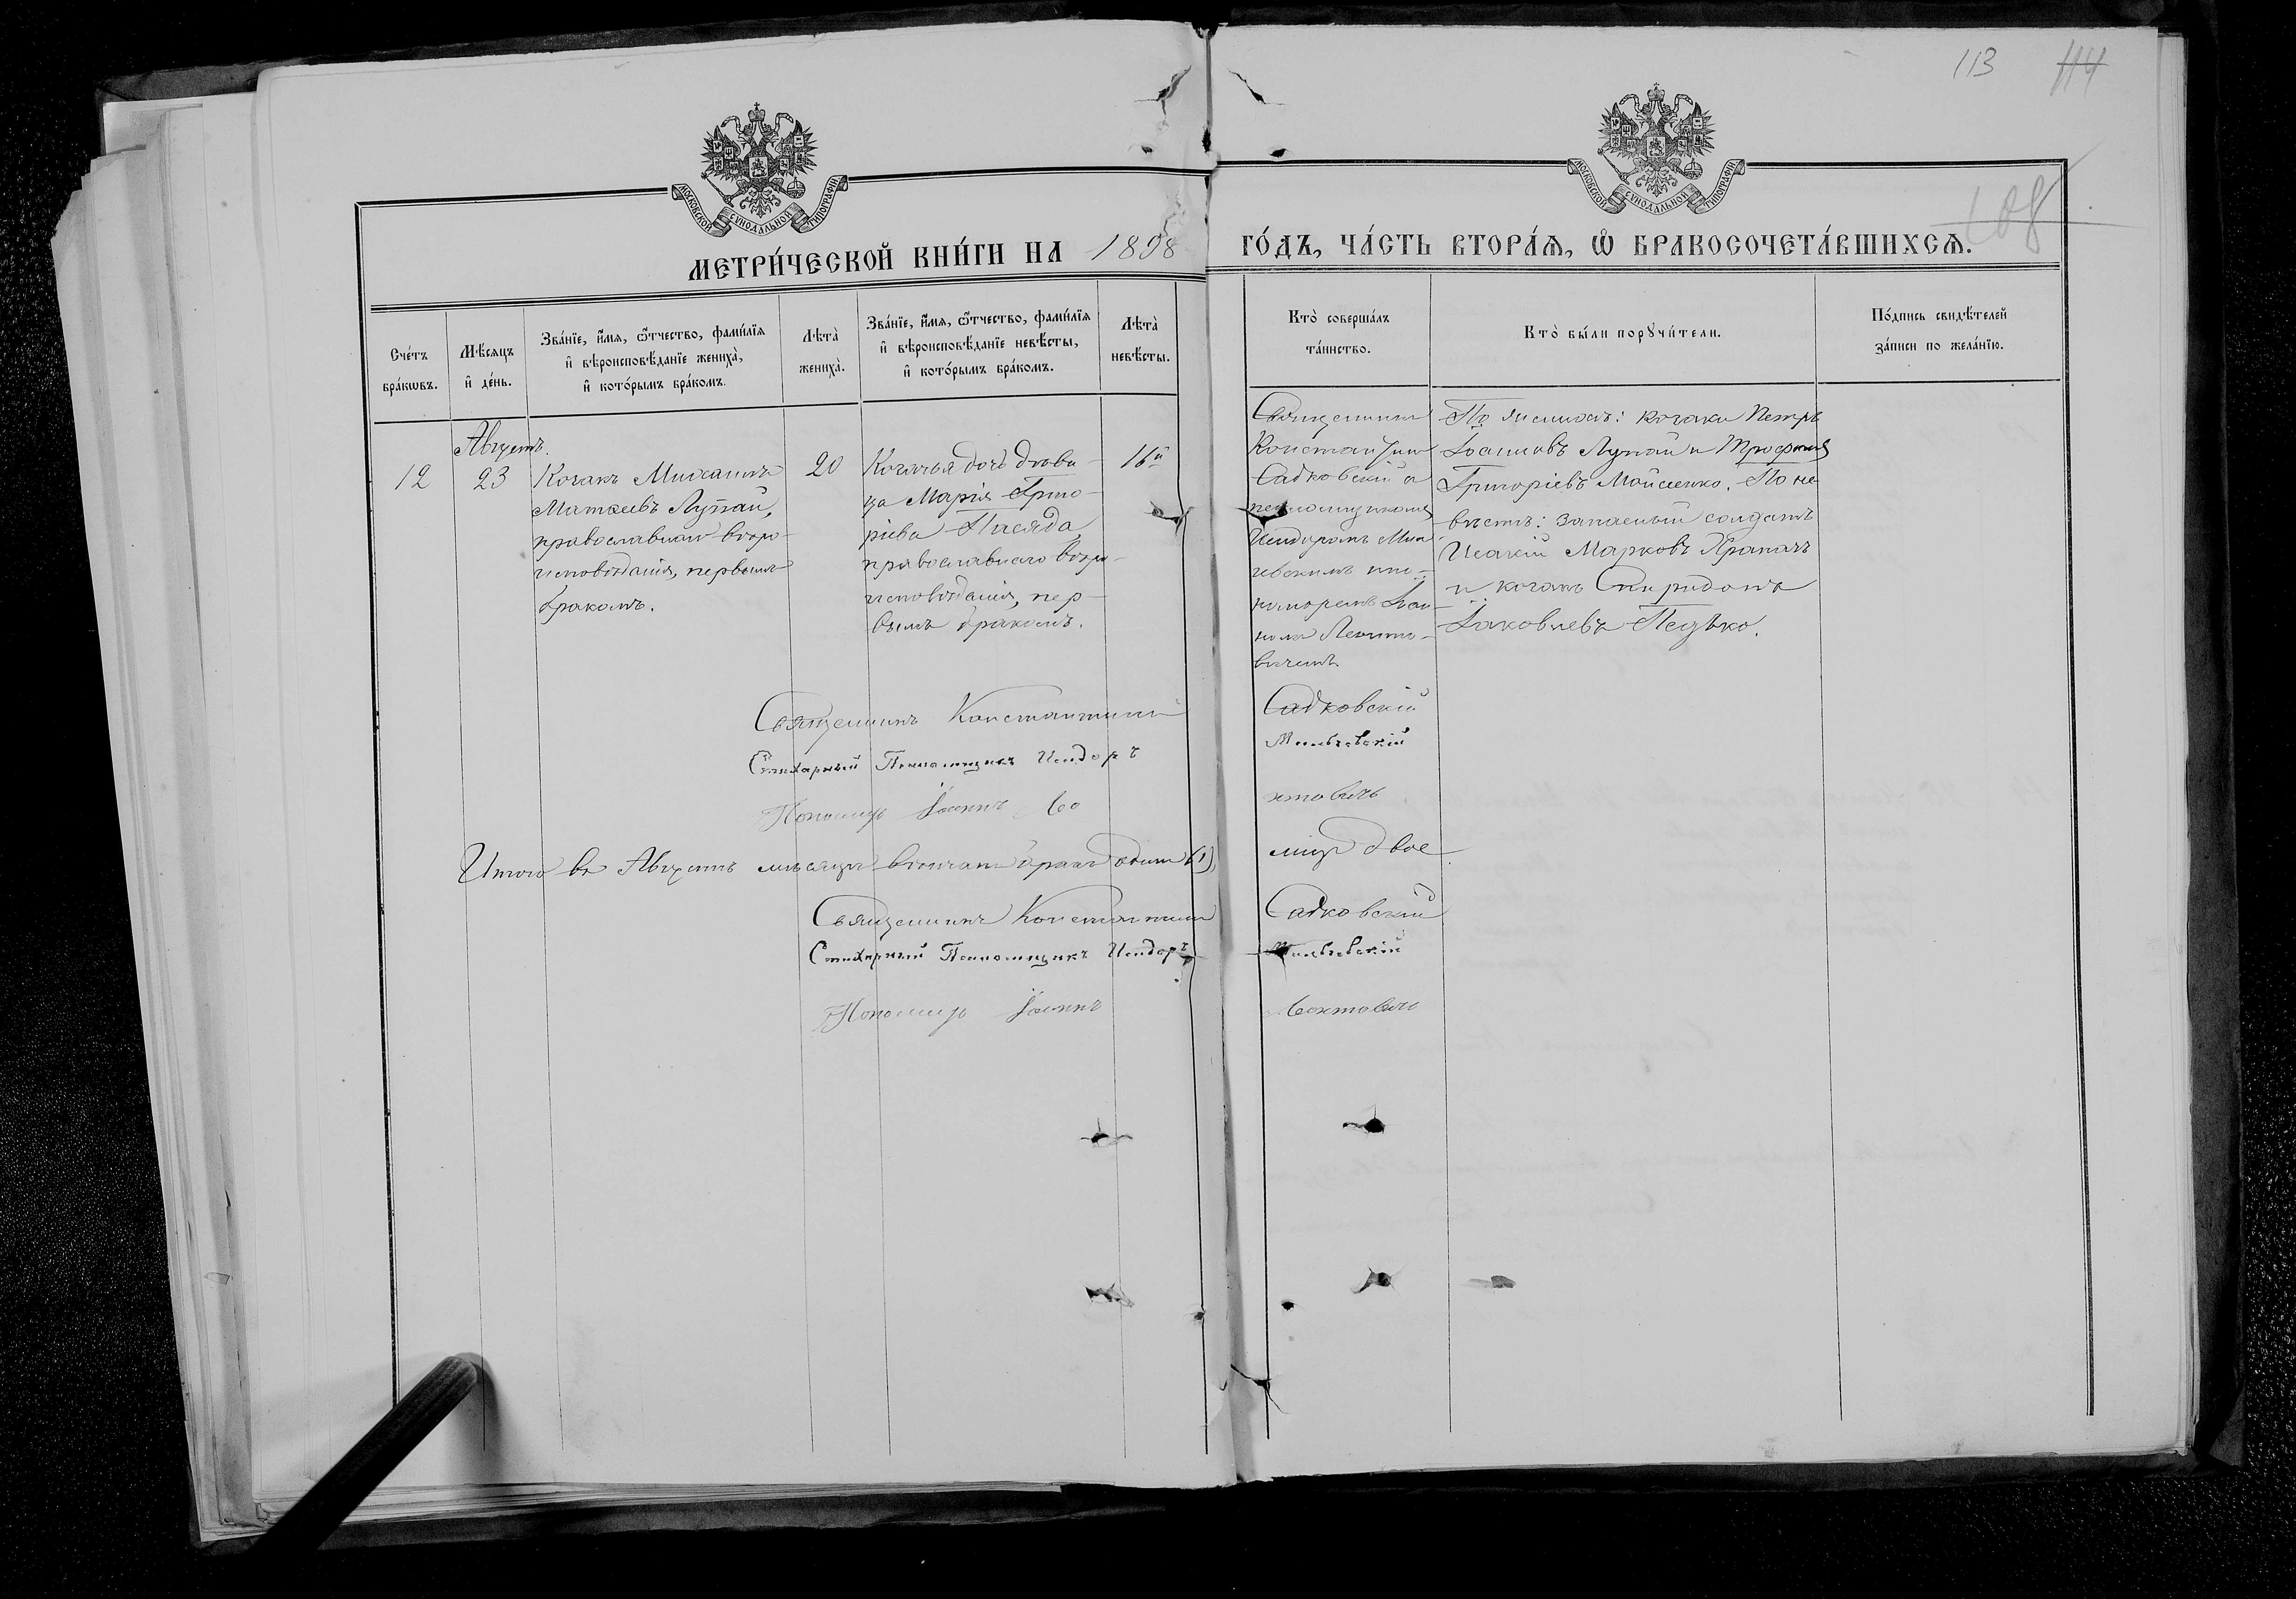 113 114
108
МОСКОВСКОЙ СѴНОДАЛЬНОЙ ТИПОГРАФІИ
МОСКОВСКОЙ СѴНОДАЛЬНОЙ ТИПОГРАФІИ
МЕТРИ́ЧЕСКОЙ КНИ́ГИ НА 1898 ГО́ДЪ, ЧА́СТЬ ВТОРА́Ѧ, Ѡ҆ БРАКОСОЧЕТА́ВШИХСѦ.
Сче́тъ бра́кѡвъ.
Мѣ́сѧцъ и҆ де́нь.
Зва́нїе, и҆́мѧ, ѻ҆́тчество, фами́лїѧ и҆ вѣроисповѣ́данїе жениха̀, и҆ кото́рымъ бра́комъ.
Лѣта̀ жениха̀.
Зва́нїе, и҆́мѧ, ѻ҆́тчество, фами́лїѧ и҆ вѣроисповѣ́данїе невѣ́сты, и҆ кото́рымъ бра́комъ.
Лѣта̀ невѣ́сты.
Кто̀ соверша́лъ та́инство.
Кто̀ бы́ли порꙋчи́тели.
По́дпись свидѣ́телей за́писи по жела́нїю.
Августъ.
12
23
Козакъ Михаилъ
Матѳеевъ Лупай,
православнаго вѣро-
исповѣданія, первымъ
бракомъ.
20
Козачья дочь дѣви-
ца Марія Григо-
ріева
православнаго вѣро-
исповѣданія, пер-
вымъ бракомъ.
16
Священникъ
Константинъ
Садковскій съ
псаломщикомъ
Исидоромъ
номаремъ Іоан-
номъ Леонто-
вичемъ.
По женихѣ: козаки Петръ
Іоанновъ Лупай и Трофимъ
Григоріевъ Мойсеенко. По не-
вѣстѣ: запасный солдатъ
Исакій Марковъ
и козакъ Спиридонъ
Іаковлевъ Педько.
Священникъ Константинъ Садковскій
Стихарный Псаломщикъ Исидоръ
Пономарь Іоаннъ Леонтовичъ
Итого въ Августѣ мѣсяцѣ вѣнчанъ бракъ одинъ (1), лицъ двое
Священникъ Константинъ Садковскій
Стихарный Псаломщикъ Исидоръ
Пономарь Іоаннъ Леонтовичъ